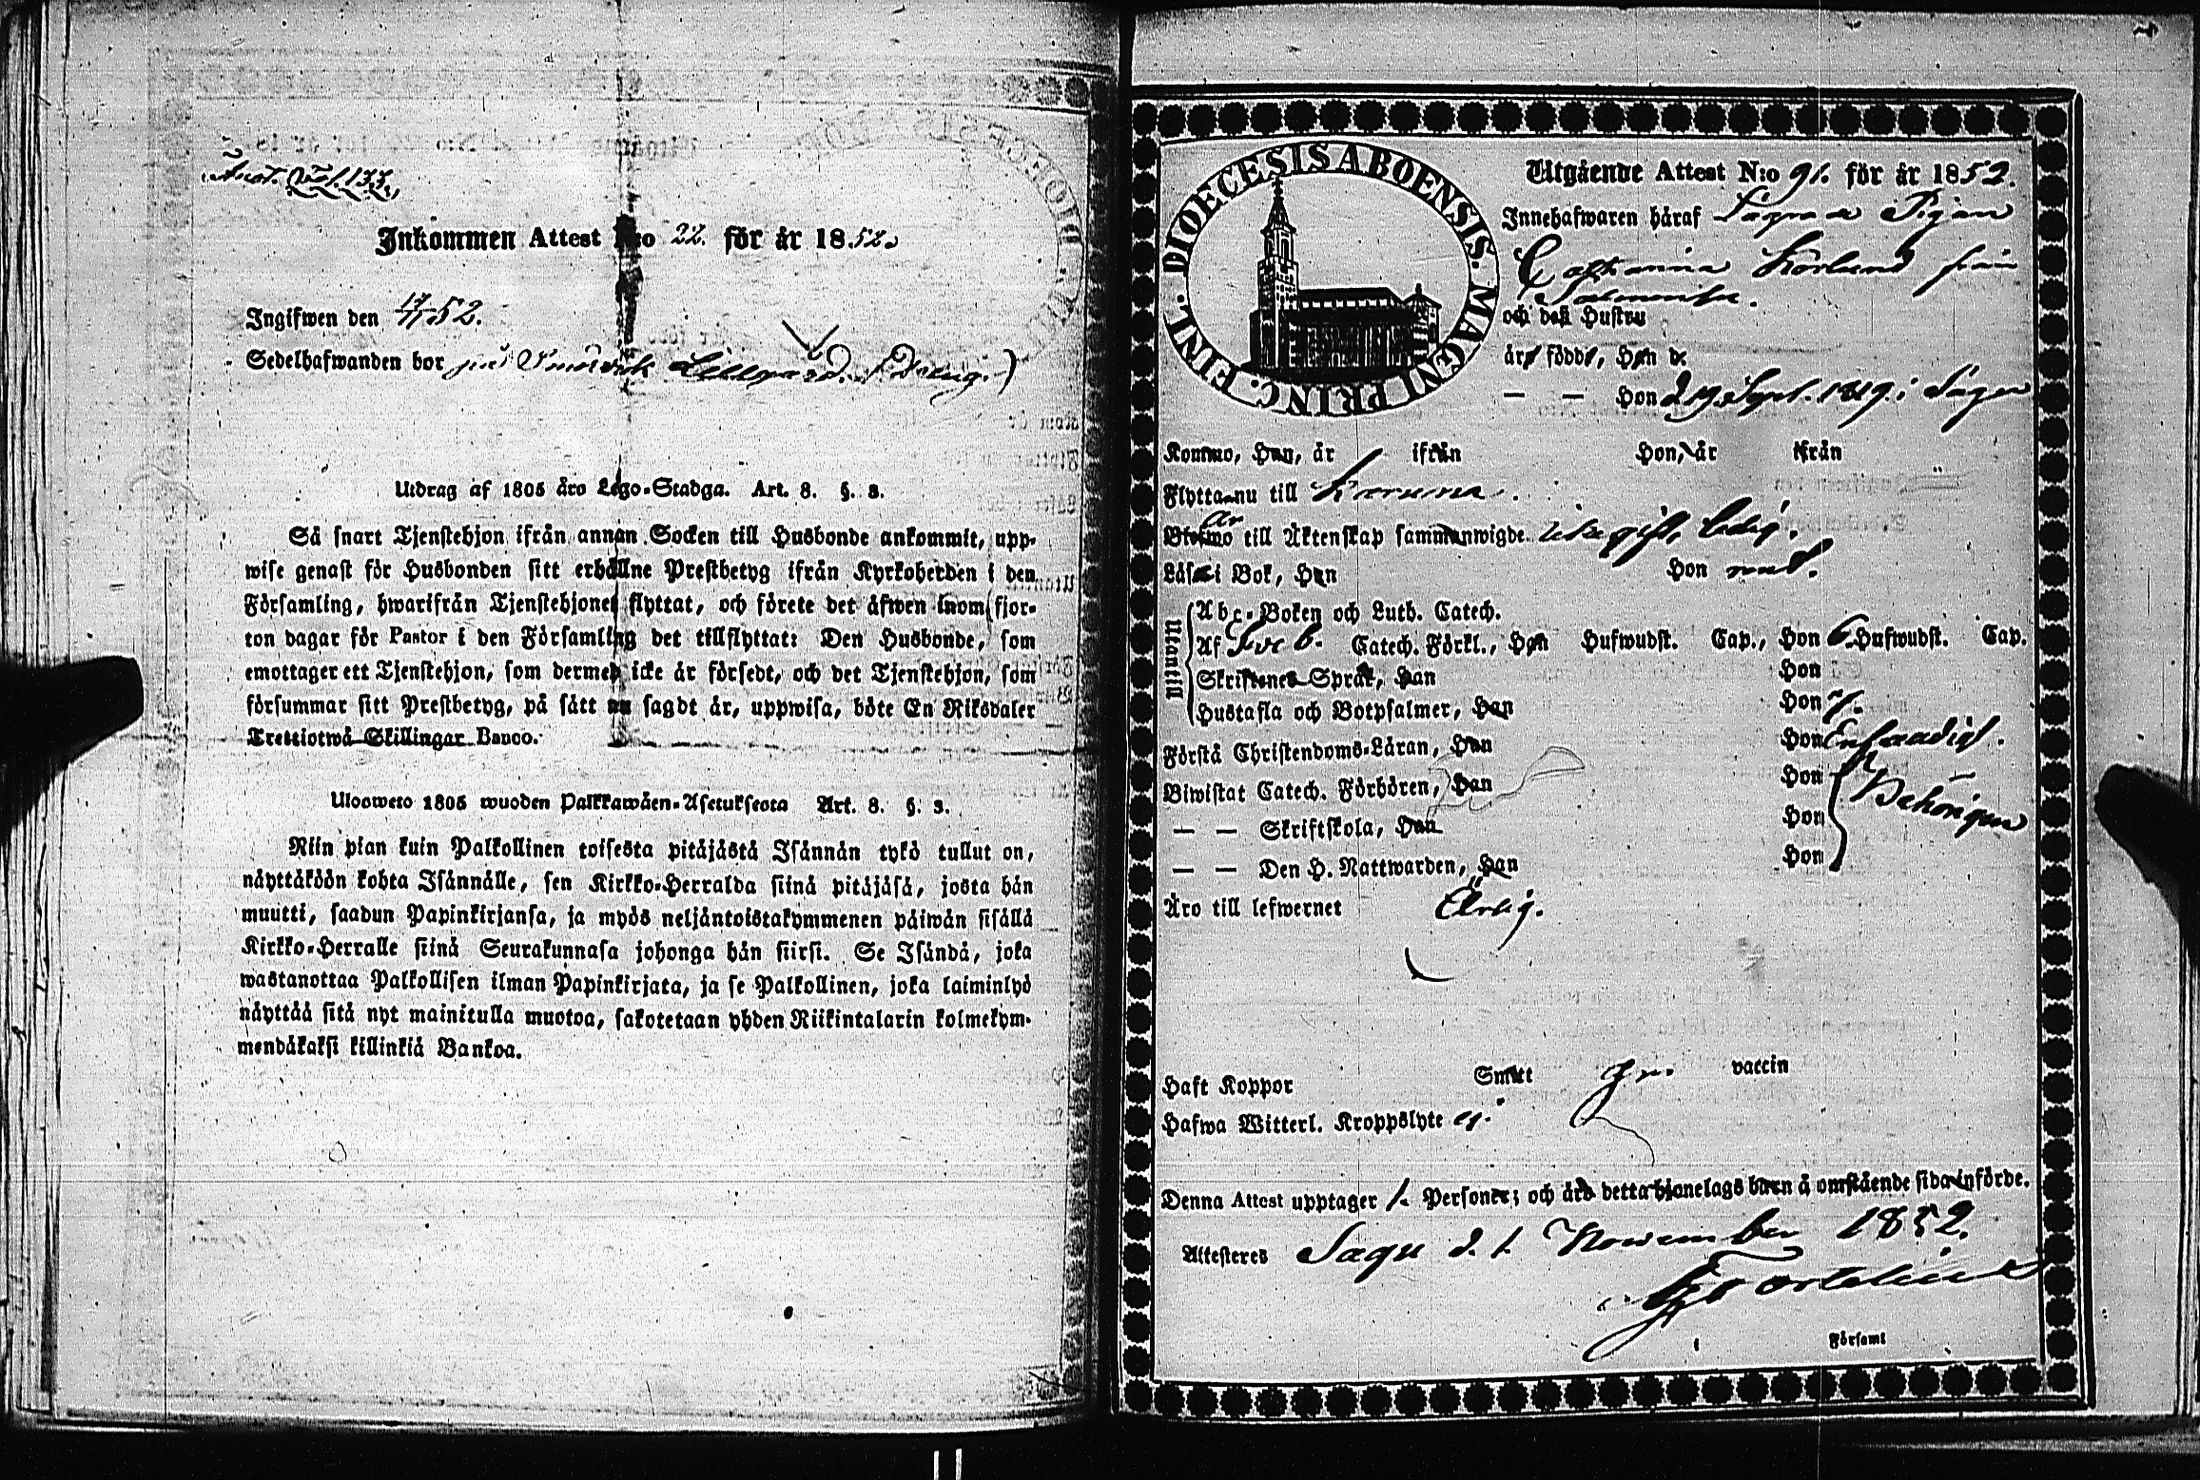 Anot. Fol. 137.
Inkommen Attest N:o 22. för år 1852.
Ingifwen den 17/11 52.
Sedelhafwanden bor på Smörvik Lillgård.
Utdrag af 1805 års Lego-Stadga. Art. 8. §. 3.
Så snart Tjenstehjon ifrån annan Socken till Husbonde ankommit, upp-
wise genast för Husbonden sitt erhållne Prestbetyg ifrån Kyrkoherden i den
Församling, hwarifrån Tjenstehjonet flyttat, och förete det äfwen inom fjor-
ton dagar för Pastor i den Församling det tillflyttat: Den Husbonde, som
emottager ett Tjenstehjon, som dermed icke är försedt, och det Tjenstehjon, som
försummar sitt Prestbetyg, på sätt nu sagdt är, uppwisa, böte En Riksdaler
Trettiotwå Skillingar Banco.
Ulosweto 1805 wuoden Palkkawäen-Asetuksesta Art. 8. §. 3.
Niin pian kuin Palkollinen toisesta pitäjästä Isännän tykö tullut on,
näyttäköön kohta Isännälle, sen Kirkko-Herralda siinä pitäjäsä, josta hän
muutti, saadun Papinkirjansa, ja myös neljäntoistakymmenen päiwän sisällä
Kirkko-Herralle siinä Seurakunnasa johonga hän siirsi. Se Isändä, joka
wastanottaa Palkollisen ilman Papinkirjata, ja se Palkollinen, joka laiminlyö
näyttää sitä nyt mainitulla muotoa, sakotetaan yhden Riikintalarin kolmekym-
mendäkaksi killinkiä Bankoa.
DIOECESIS ABOENSIS. MAGNI PRINC. FINL.
Utgående Attest N:o 91. för år 1852.
Innehafwaren häraf Pigan
Catharina Körlund från
och des Hustru
äro födde, Han d.
— — Hon d. 19 Sept. 1819 i Sagu
Kommo, Han, år ifrån Hon, år ifrån
Flytta nu till Karuna.
Blefwo är till Äktenskap sammanwigde. icke gift, ledig.
Läsa i Bok, Han Hon
Utantill
Abc-Boken och Luth. Catech.
Af Sveb. Catech. Förkl., Han Hufwudst. Cap., Hon 6. Hufwudst. Cap.
Skriftenes Språk, Han Hon
Hustafla och Botpsalmer, Han Hon 7.
Förstå Christendoms-Läran, Han Hon Enfaldigt.
Biwistat Catech. Förhören, Han Hon Behörigen
— — Skriftskola, Han Hon
— — Den H. Nattwarden, Han Hon
Äro till lefwernet Ärlig.
Haft Koppor Smitt vaccin
Hafwa Witterl. Kroppslyte ej.
Denna Attest upptager 1. Personer; och äro detta hjonelags barn å omstående sida införde.
Attesteres Sagu d. 1. November 1852.
i Församl